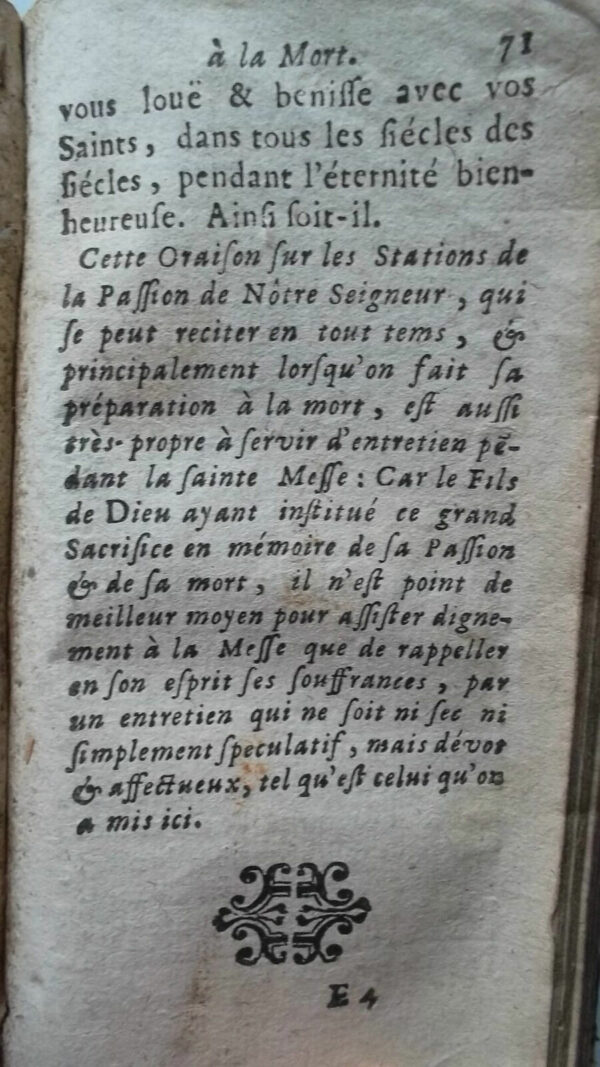 à la Mort. 71
vous louë & benisse avec vos
Saints, dans tous les siécles des
siécles, pendant l'éternité bien-
heureuse. Ainsi soit-il.
Cette Oraison sur les Stations de
la Passion de Nôtre Seigneur, qui
se peut reciter en tout tems, &
principalement lorsqu'on fait sa
préparation à la mort, est aussi
très-propre à servir d'entretien pē-
dant la sainte Messe : Car le Fils
de Dieu ayant institué ce grand
Sacrifice en mémoire de sa Passion
& de sa mort, il n'est point de
meilleur moyen pour assister digne-
ment à la Messe que de rappeller
en son esprit ses souffrances, par
un entretien qui ne soit ni sec ni
simplement speculatif, mais dévot
& affectueux, tel qu'est celui qu'on
a mis ici.
E 4